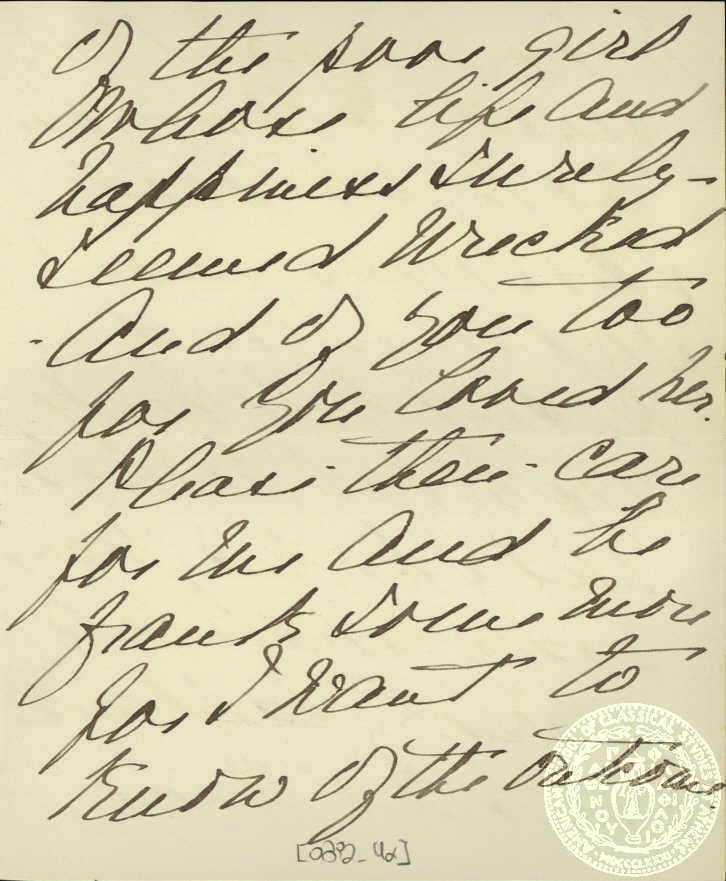 of the poor girl
Whose life and
happiness surely -
seemed wrecked
- And of you too
for you loved her.
Please - then - care
for me and be
frank some more
for I want to
know of the outcome.
AMERICAN SCHOOL OF CLASSICAL STUDIES ATHENS
MDCCCLXXXI